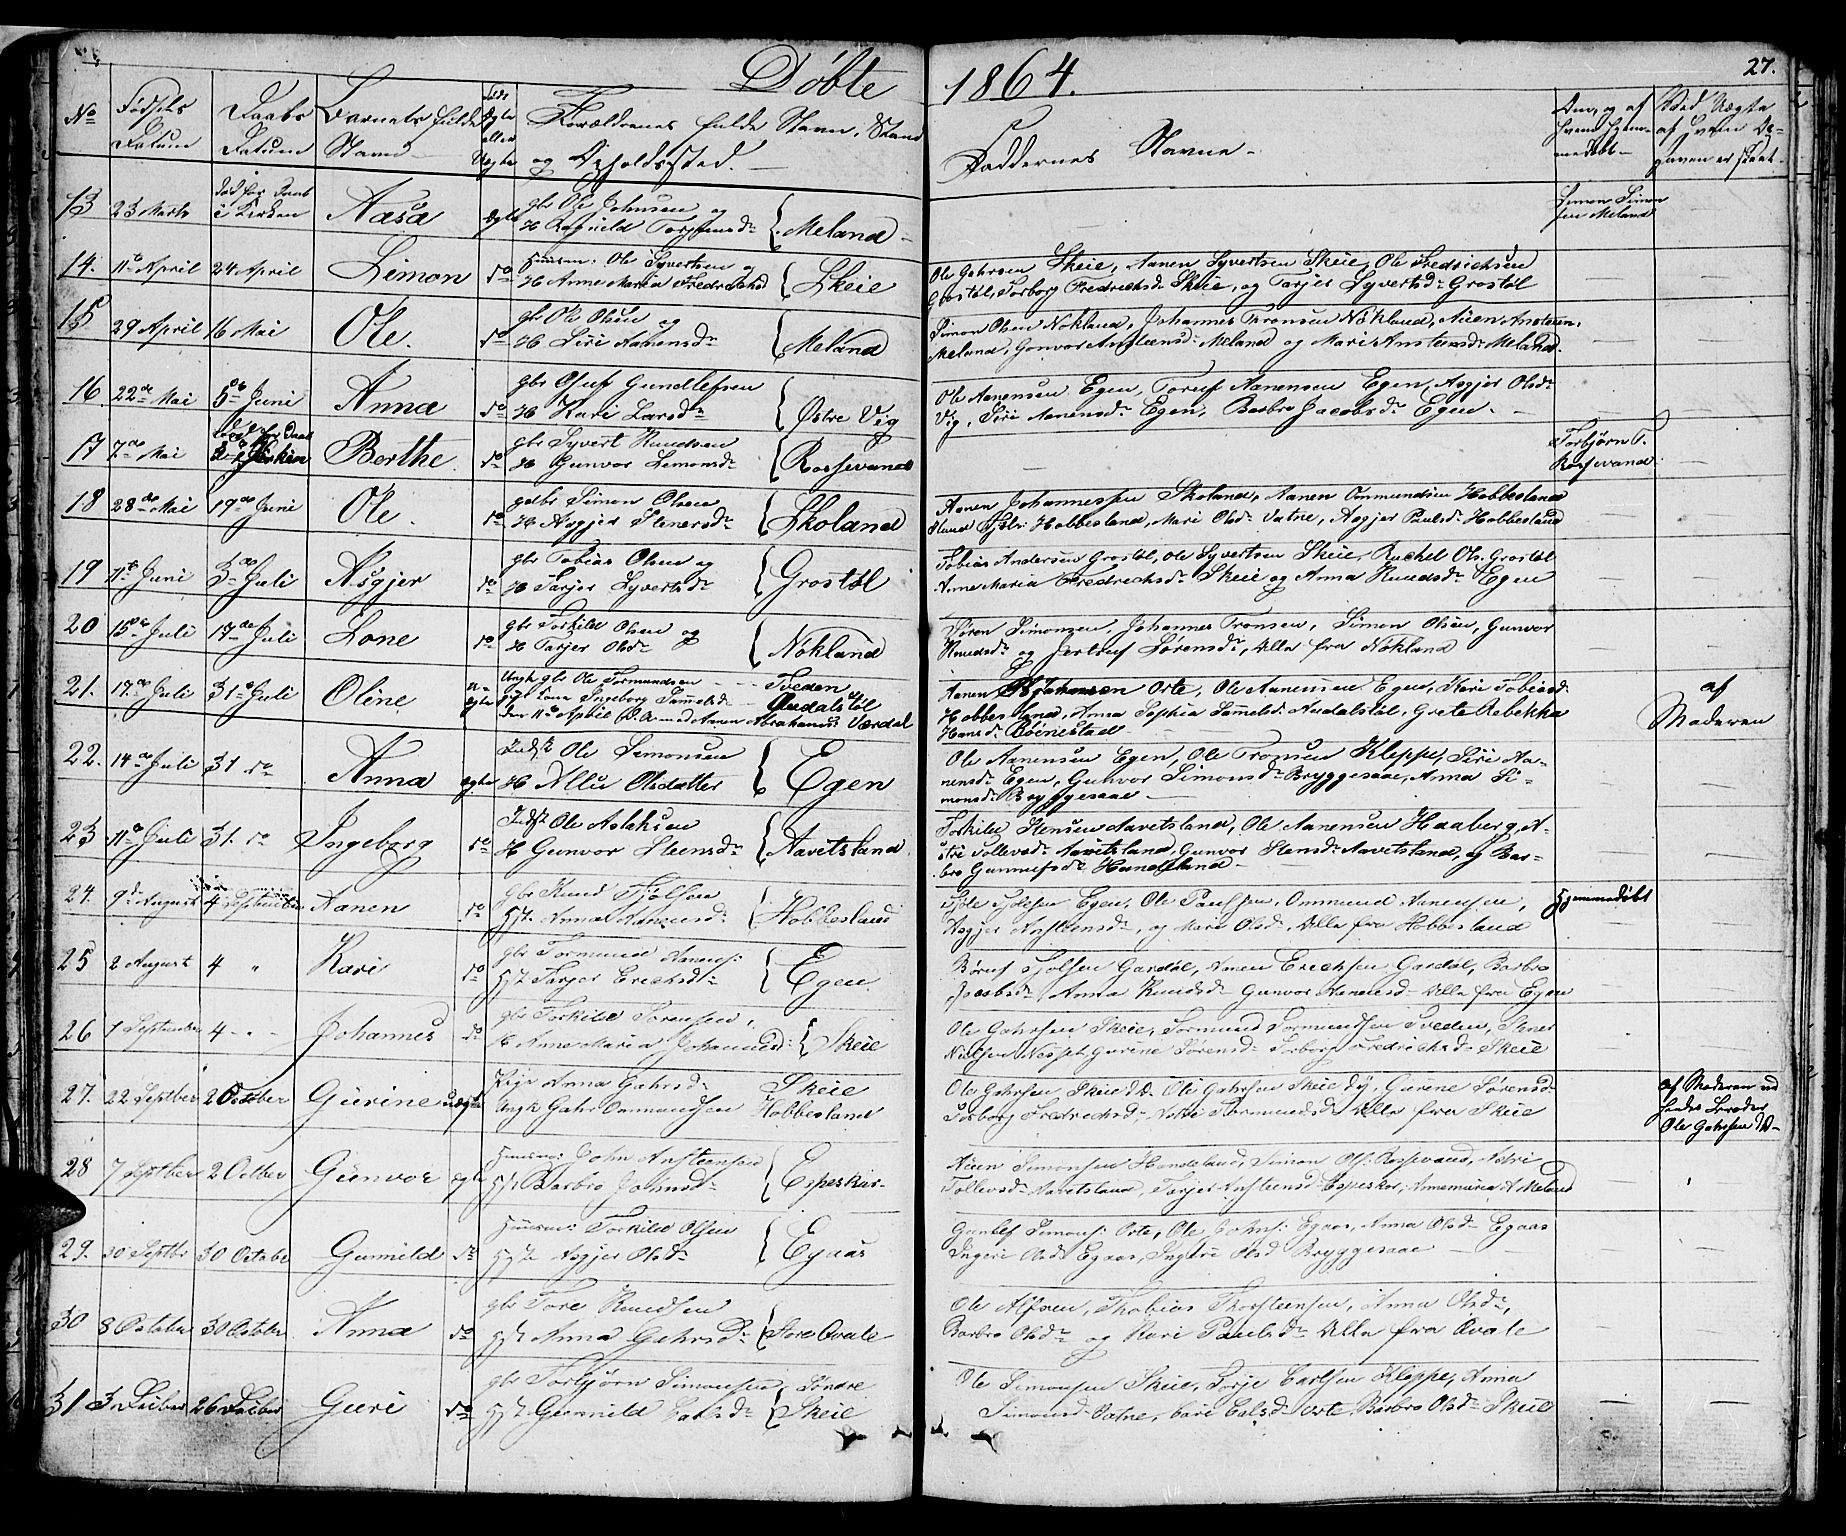 Døbte 1864. 27.
No Fødsels Datum Daabs Datum Barnets fulde Navn Ægte eller Uægte Forældrenes fulde Navn, Stand og Opholdssted. Faddernes Navne Om, og af hvem hjemmedøbt Ved Uægte af hvem Opgaven er skeet
13 23 Marts i Kirken Aasa ægte gbr Ole Johnsen og H Ragnild Torjensdr Meland Simon Simonsen Meland
14. 11te April 24 April Simon do Huusm: Ole Syvertsen og H Anne Maria Fredrichsd Skeie
Ole Gahrsen Skeie, Aanen Syvertsen Skeie, Ole Fredrichsen
Grostøl, Torborg Fredrichsdr Skeie, og Tarjer Syvertsdr Grostøl
15 29 April 16 Mai Ole. do gbr Ole Olsen og H Siri Aanensdr Meland
Simon Olsen Nokland, Johannes Tronsen Nökland, Auen Anstensen
Meland, Gonvor Anstensdr Meland og Mari Anstensdr Meland.
16 22de Mai 5te Juni Anna do gbr Osuf Gundlefsen H Kari Larsdr Østre Vig
Ole Aanensen Egen, Toruf Aanensen Egen, Asgjer Olsdr
Vig, Siri Aanensdr Egen, Barbro Jacobsdr Egen.
17 7de Mai Berthe do gbr Syvert Knudsen H Gunvor Simonsdr Rossevand Torbjørn T. Rossevand
18 28de Mai 19de Juni Ole. do gbr Simon Olsen H Asgjer Stenersdr Skoland
Aanen Johannessen Skoland, Aanen Ommundsen Hobbesland
Hobbesland, Mari Olsdr Vatne, Asgjer Paulsdr Hobbesland
19 11te Juni 3de Juli Asgjer do gbr Tobias Olsen og H Tarjer Syvertsdr Grostøl
Tobias Andersen Grostøl, Ole Syvertsen Skeie, Rachel Ols. Grostöl
Anne Maria Fredrechsdr Skeie og Anna Knudsdr Egen
20 15de Juli 17de Juli Lone do gbr Torkild Olsen og H Tarjer Olsdr Nokland
Søren Simonsen, Johannes Tronsen, Simon Olsen, Gunvor
Knudsdr og Jertruf Sørensdr, Alle fra Nökland
21. 17de Juli 31te Juli Oline uægte Ungk gbr Ole Tormundsen Tveden
Ingeborg Samuelsdr Audalstöl
den 11te April Aanen Abrahams Værdal
Aanen Johansen Orte, Ole Aanensen Egen, Kari Tobiasdr
Hobbesland, Anna Sophia Samuelsd Audalstøl, Grete Rebekka
Hansdr Boinestad
af Moderen
22. 14de Juli 31 do Anna ægte Inds Ole Simonsen H Allu Olsdatter Egen
Ole Aanensen Egen, Ole Tronsen Kleppe, Siri Aa-
nensdr Egen, Gunvor Simonsdr Bryggesaae, Anna Si-
monsdr Bryggesaae
23 11te Juli 31. do Ingeborg do Inds Ole Aslaksen H Gunvor Steensdr Aavetsland
Torkild Stensen Aavetsland, Ole Aanensen Haaberg, A-
stri Tollevsdr Aavetsland, Gunvor Stensdr Aavetsland, og Bar-
bro Gunnufsdr Handeland
24. 9de August 4 September Aanen do gbr Knud Tjølsen Hst Anna Aanensdr Hobbesland
Egen, Ole Paulssen, Ommund Aanensen,
Asgjer Anstensdr, og Mari Olsdr, Alle fra Hobbesland
Hjemmedøbt
25 2 August 4 " Kari do gbr Tormund Aanens: Hst Tarjer Erichsdr Egen
Børuf Tjølsen Gardöl, Aanen Erichsen Gardöl, Barbro
Jacobsdr Anna Knudsdr Gunvor Aanensdr Alle fra Egen
26 1 September 4 - - Johannes do gbr Torkild Sørensen, H Anne Maria Johannesd: Skeie
Ole Gahrsen Skeie, Tormund Tormundsen Tveden, Stener
Nielsen Nesset, Gurine Sørensdr Torborg Fredrichsdr Skeie
27. 22 Septber 2 October Gurine uægte Pige Anna Gahrsdr Skeie
Ungk Gahr Ommundsen Hobbesland
Ole Gahrsen Skeie d. Æ. Ole Gahrsen Skeie d y, Gurene Sørensd
Torborg Fredrichsdr Alle fra Skeie
af Moderen ved hendes Broder Ole Gahrsen d Æ
28 7 Septber 2 October Gunvor ægte Huusm John Anstensen Hst Barbro Johnsdr Espeskar
Auen Simonsen Handeland, Simon Ols: Rossevand,
Tollevsdr Aavetsland, Tarjer Anstensdr Espeskar, Annemaria A Meland
29. 30 Septbr 30 October Gunnild do Huusm: Torkild Olsen Hst Asgjer Olsdr Egaas
Gunlef Simons: Orte, Ole Johns: Egaas, Anna Olsdr Egaas
Ingeri Olsd Egaas, Ingeri Olsd Bryggesaae
30 8 October 30 October Anna do gbr Tore Knudsen Hst Anna Gahrsdr Store Ovale
Ole Alfsen, Thobias Thorsteensen, Anna Olsdr,
Barbro Olsdr og Kari Paulsdr Alle fra Ovale
31 3 Decber 26 Decber Guri do gbr Torbjørn Simonsen Hst Gunnild Søndre Skeie
Ole Simonsen Skeie, Torje Carlsen Kleppe, Anna
Simonsd Vatne, Orte Barbro Olsdr Skeie